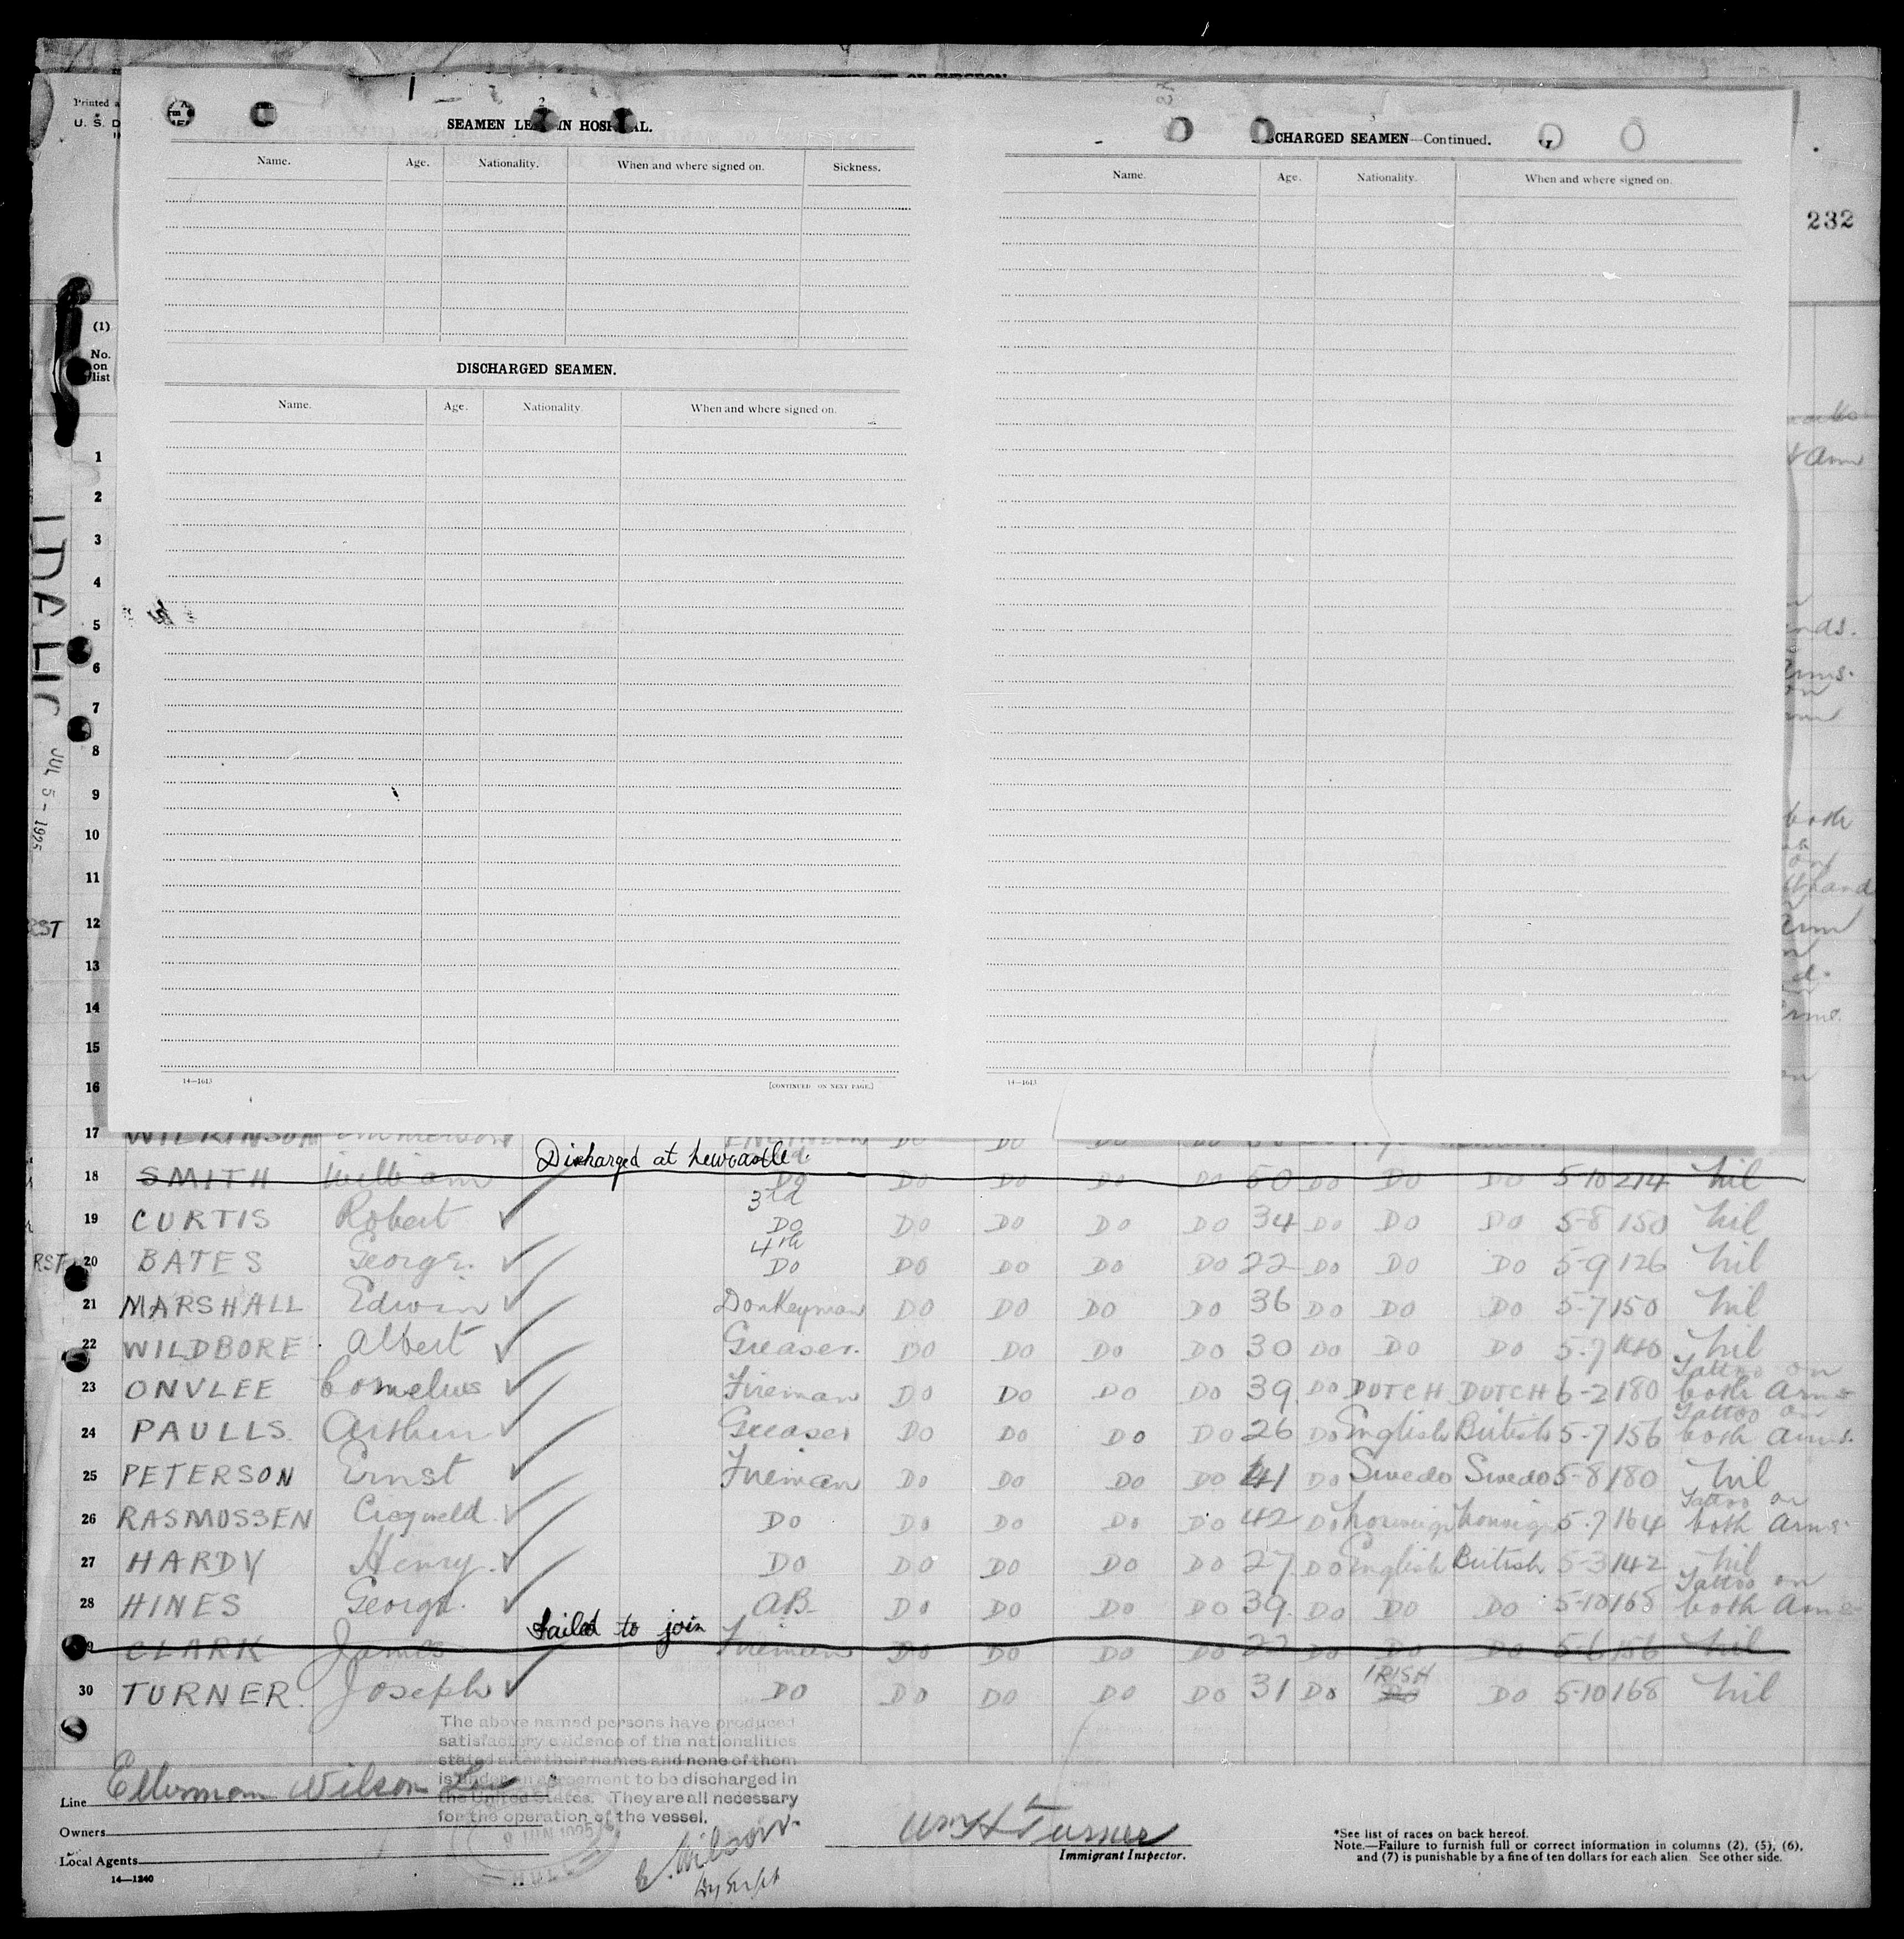 232
Printed
U. S. D
SEAMEN LEFT IN HOSPITAL.
Name. Age. Nationality. When and where signed on. Sickness.
DISCHARGED SEAMEN.
Name. Age. Nationality. When and where signed on.
14—1613 [CONTINUED ON NEXT PAGE.]
CHARGED SEAMEN—Continued.
Name. Age. Nationality. When and where signed on.
14—1613
(1)
No.
on
list
IDALIC JUL 5 - 1925
1
2
3
4
5
6
7
8
9
10
11
12
13
14
15
16
17 WILKINSON
Discharged at Newcastle.
18 SMITH William Do Do Do Do Do 50 Do Do Do 5-10 214 Nil
19 CURTIS Robert 3rd Do Do Do Do Do 34 Do Do Do 5-8 150 Nil
20 BATES George. 4th Do Do Do Do Do 22 Do Do Do 5-9 126 Nil
21 MARSHALL Edwin Donkeyman Do Do Do Do 36 Do Do Do 5-7 150 Nil
22 WILDBORE Albert Greaser. Do Do Do Do 30 Do Do Do 5-7 140 Nil
23 ONVLEE Cornelius Fireman Do Do Do Do 39 Do DUTCH DUTCH 6-2 180 Tattoo on both Arms
24 PAULLS. Arthur Greaser Do Do Do Do 26 Do English British 5-7 156 Tattoo on both Arms.
25 PETERSON Ernst Fireman Do Do Do Do 41 Do Swede Swede 5-8 180 Nil
26 RASMUSSEN Do Do Do Do Do 42 Do 5-7 164 Tattoo on both Arms.
27 HARDY Henry. Do Do Do Do Do 27 Do English British 5-3 142 Nil
28 HINES George. AB Do Do Do Do 39 Do Do Do 5-10 168 Tattoo on both Arms
Failed to join
29 CLARK James Fireman Do Do Do Do 22 Do Do Do 5-6 156 Nil
30 TURNER. Joseph Do Do Do Do Do 31 Do IRISH Do 5-10 168 Nil
The above named persons have produced
satisfactory evidence of the nationalities
stated after their names and none of them
is under an agreement to be discharged in
the United States. They are all necessary
for the operation of the vessel.
Line Ellerman Wilson Line
Owners
Local Agents
14—1240
Wm H Turner
Immigrant Inspector.
*See list of races on back hereof.
Note.—Failure to furnish full or correct information in columns (2), (5), (6),
and (7) is punishable by a fine of ten dollars for each alien. See other side.